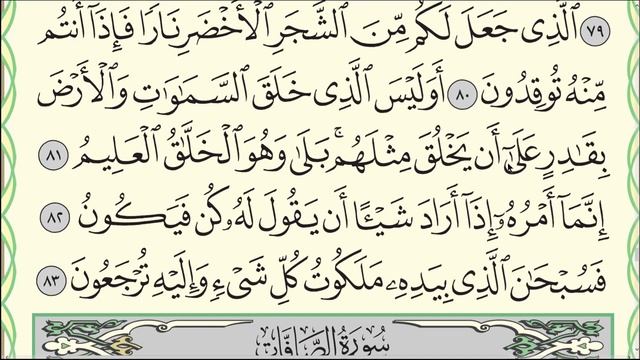 ٧٩ ٱلَّذِى جَعَلَ لَكُم مِّنَ ٱلشَّجَرِ ٱلْأَخْضَرِ نَارًا فَإِذَآ أَنتُم
مِّنْهُ تُوقِدُونَ ٨٠ أَوَلَيْسَ ٱلَّذِى خَلَقَ ٱلسَّمَٰوَٰتِ وَٱلْأَرْضَ
بِقَٰدِرٍ عَلَىٰٓ أَن يَخْلُقَ مِثْلَهُم ۚ بَلَىٰ وَهُوَ ٱلْخَلَّٰقُ ٱلْعَلِيمُ ٨١
إِنَّمَآ أَمْرُهُۥٓ إِذَآ أَرَادَ شَيْـًٔا أَن يَقُولَ لَهُۥ كُن فَيَكُونُ ٨٢
فَسُبْحَٰنَ ٱلَّذِى بِيَدِهِۦ مَلَكُوتُ كُلِّ شَىْءٍ وَإِلَيْهِ تُرْجَعُونَ ٨٣
سُورَةُ الصَّافَّاتِ